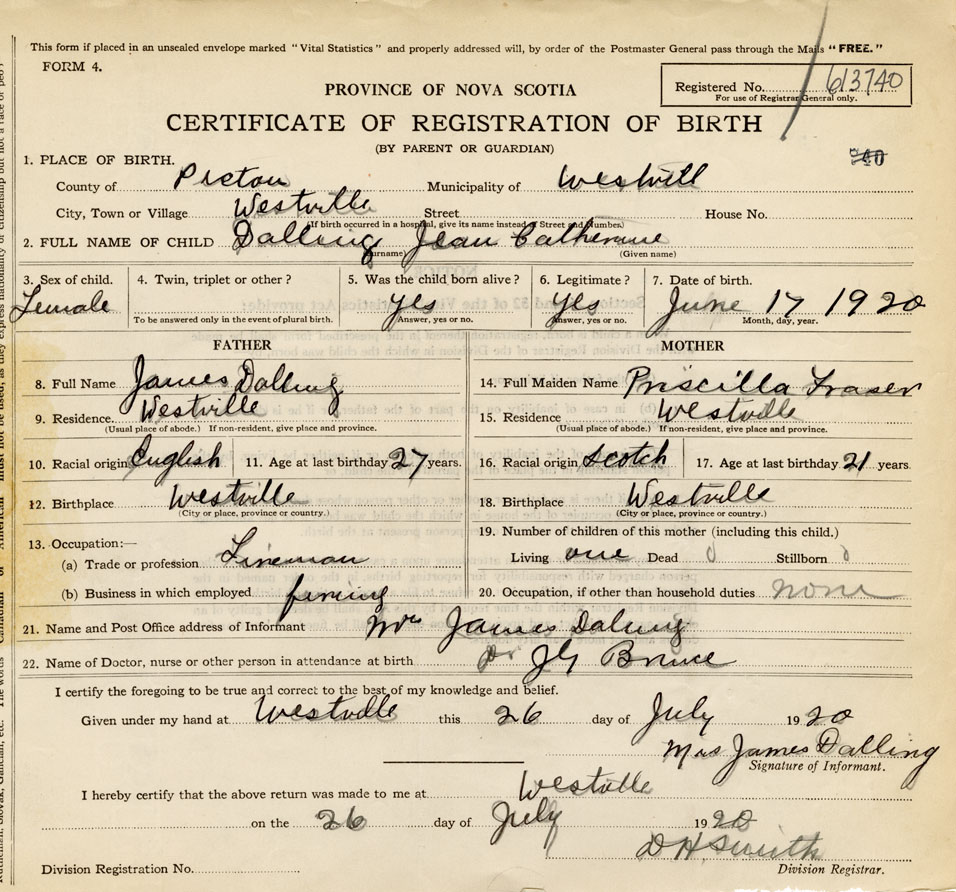 This form if placed in an unsealed envelope marked "Vital Statistics" and properly addressed will, by order of the Postmaster General pass through the Mails "FREE."
FORM 4.
Registered No. 613740
For use of Registrar General only.
PROVINCE OF NOVA SCOTIA
CERTIFICATE OF REGISTRATION OF BIRTH
(BY PARENT OR GUARDIAN)
1. PLACE OF BIRTH.
County of Pictou Municipality of Westvill
City, Town or Village Westville Street House No.
(If birth occurred in a hospital, give its name instead of Street and Number.)
2. FULL NAME OF CHILD Dalling Jean Catherine
(Surname) (Given name)
3. Sex of child. 4. Twin, triplet or other? 5. Was the child born alive? 6. Legitimate? 7. Date of birth.
Female Yes Yes June 17 1920
To be answered only in the event of plural birth. Answer, yes or no. Answer, yes or no. Month, day, year.
FATHER MOTHER
8. Full Name James Dalling 14. Full Maiden Name Priscilla Fraser
9. Residence. Westville 15. Residence Westville
(Usual place of abode.) If non-resident, give place and province. (Usual place of abode.) If non-resident, give place and province.
10. Racial origin English 11. Age at last birthday 27 years. 16. Racial origin Scotch 17. Age at last birthday 21 years.
12. Birthplace Westville 18. Birthplace Westville
(City or place, province or country.) (City or place, province or country.)
13. Occupation:— 19. Number of children of this mother (including this child.)
(a) Trade or profession Lineman Living one Dead 0 Stillborn 0
(b) Business in which employed 20. Occupation, if other than household duties none
21. Name and Post Office address of Informant Mrs James Dalling
22. Name of Doctor, nurse or other person in attendance at birth Dr Bruce
I certify the foregoing to be true and correct to the best of my knowledge and belief.
Given under my hand at Westville this 26 day of July 1920
Mrs James Dalling
Signature of Informant.
I hereby certify that the above return was made to me at Westville
on the 26 day of July 1920
D H Smith
Division Registration No. Division Registrar.